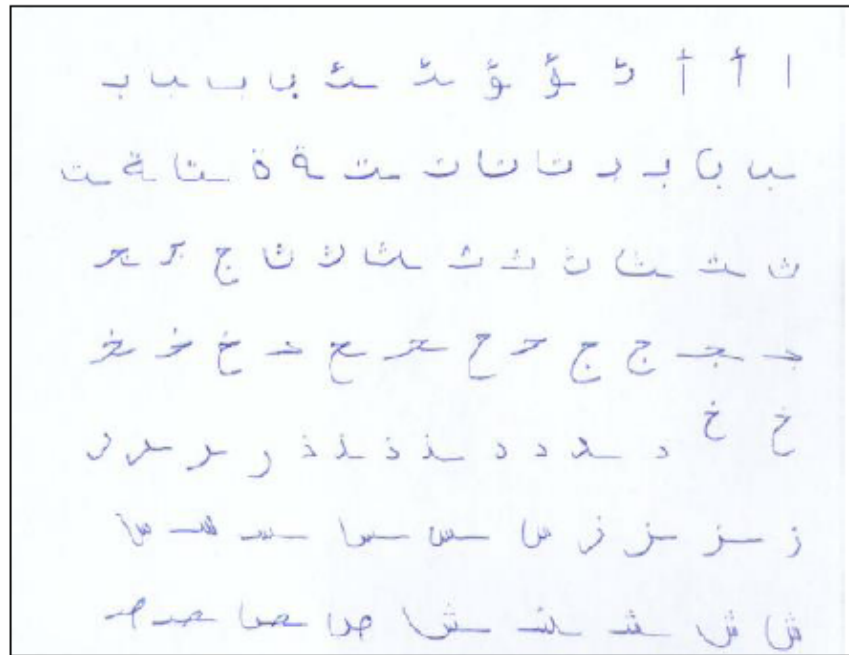 ا أ أ ئـ ؤ ؤ ئـ ـئـ ب ب ـبـ بـ
ـبـ ب بـ ت ت ت ـتـ ـة ة ـت ـة ـتـ
ث ـثـ ـث ث ثـ ثـ ـث ث ث ج جـ ـجـ
جـ ـجـ ج ج حـ ح ـحـ ـح حـ خ خـ ـخـ
خ خ د ـد د د ـذ ذ ـذ ذ ر ـر ـر ر
ز ـز ـز ز س ـس ـس ـسـ ـسـ س
ش ش ـشـ ـشـ ـش ص ـص ـصـ صـ